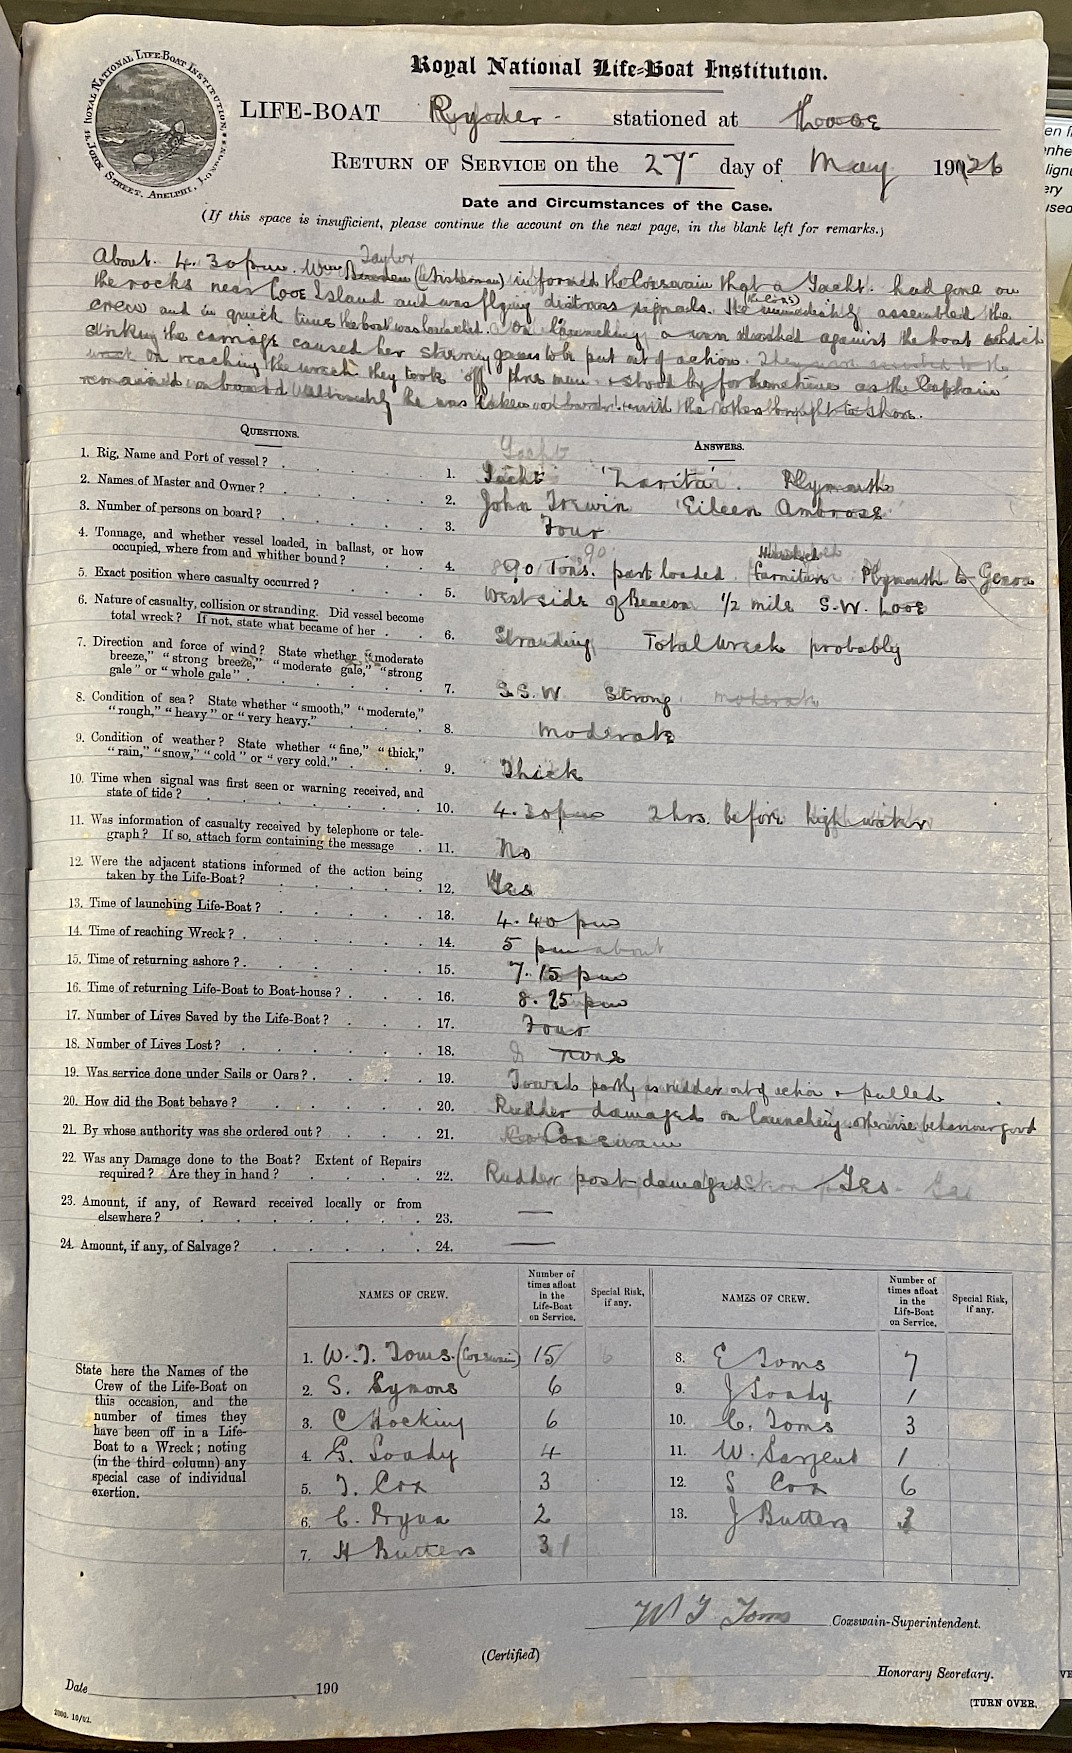 ROYAL NATIONAL LIFE-BOAT INSTITUTION,
JOHN STREET, ADELPHI,
Royal National Life-Boat Institution.
LIFE-BOAT Ryder - stationed at Looe
RETURN OF SERVICE on the 27 day of May 1926
Date and Circumstances of the Case.
(If this space is insufficient, please continue the account on the next page, in the blank left for remarks.)
Taylor
About 4.30pm. Wm (fisherman) informed the Coxswain that a Yacht had gone on
the rocks near Looe Island and was flying distress signals. He immediately assembled the
crew and in quick time the boat was launched. On launching a sea dashed against the boat which
striking the carriage caused her steering gear to be put out of action. They
on reaching the wreck they took off three men & stood by for some time as the Captain
remained on board Ultimately he was taken on board with the others brought to shore.
QUESTIONS.
ANSWERS.
1. Rig, Name and Port of vessel? 1. Yacht 'Zarita'. Plymouth
2. Names of Master and Owner? 2. John Trewin 'Eileen Ambrose'
3. Number of persons on board? 3. Four
4. Tonnage, and whether vessel loaded, in ballast, or how
occupied, where from and whither bound? 4. 90 Tons. part loaded furniture Plymouth to Genoa
5. Exact position where casualty occurred? 5. West side of Beacon ½ mile S.W. Looe
6. Nature of casualty, collision or stranding. Did vessel become
total wreck? If not, state what became of her 6. Stranding Total Wreck probably
7. Direction and force of wind? State whether "moderate
breeze," "strong breeze," "moderate gale," "strong
gale" or "whole gale" 7. S.S.W Strong moderate
8. Condition of sea? State whether "smooth," "moderate,"
"rough," "heavy" or "very heavy." 8. moderate
9. Condition of weather? State whether "fine," "thick,"
"rain," "snow," "cold" or "very cold." 9. Thick
10. Time when signal was first seen or warning received, and
state of tide? 10. 4.30pm 2 hrs. before high water
11. Was information of casualty received by telephone or tele-
graph? If so, attach form containing the message 11. No
12. Were the adjacent stations informed of the action being
taken by the Life-Boat? 12. Yes
13. Time of launching Life-Boat? 13. 4.40 pm
14. Time of reaching Wreck? 14. 5 pm about
15. Time of returning ashore? 15. 7.15 pm
16. Time of returning Life-Boat to Boat-house? 16. 8.25 pm
17. Number of Lives Saved by the Life-Boat? 17. Four
18. Number of Lives Lost? 18. none
19. Was service done under Sails or Oars? 19. Towed partly as rudder out of action & pulled
20. How did the Boat behave? 20. Rudder damaged on launching. otherwise behaviour good
21. By whose authority was she ordered out? 21. Coxswain
22. Was any Damage done to the Boat? Extent of Repairs
required? Are they in hand? 22. Rudder post damaged Yes. Yes
23. Amount, if any, of Reward received locally or from
elsewhere? 23. —
24. Amount, if any, of Salvage? 24. —
State here the Names of the
Crew of the Life-Boat on
this occasion, and the
number of times they
have been off in a Life-
Boat to a Wreck; noting
(in the third column) any
special case of individual
exertion.
NAMES OF CREW. Number of times afloat in the Life-Boat on Service. Special Risk, if any. NAMES OF CREW. Number of times afloat in the Life-Boat on Service. Special Risk, if any.
1. W. T. Toms. (Coxswain) 15 8. E Toms 7
2. S. Symons 6 9. J Soady 1
3. C Hocking 6 10. C. Toms 3
4. G. Soady 4 11. W. Sargent 1
5. T. Cox 3 12. S Cox 6
6. C. Pryna 2 13. J Butters 3
7. H Butters 3
W T Toms Coxswain-Superintendent.
(Certified)
Honorary Secretary.
Date 190
[TURN OVER.
2000. 10/02.